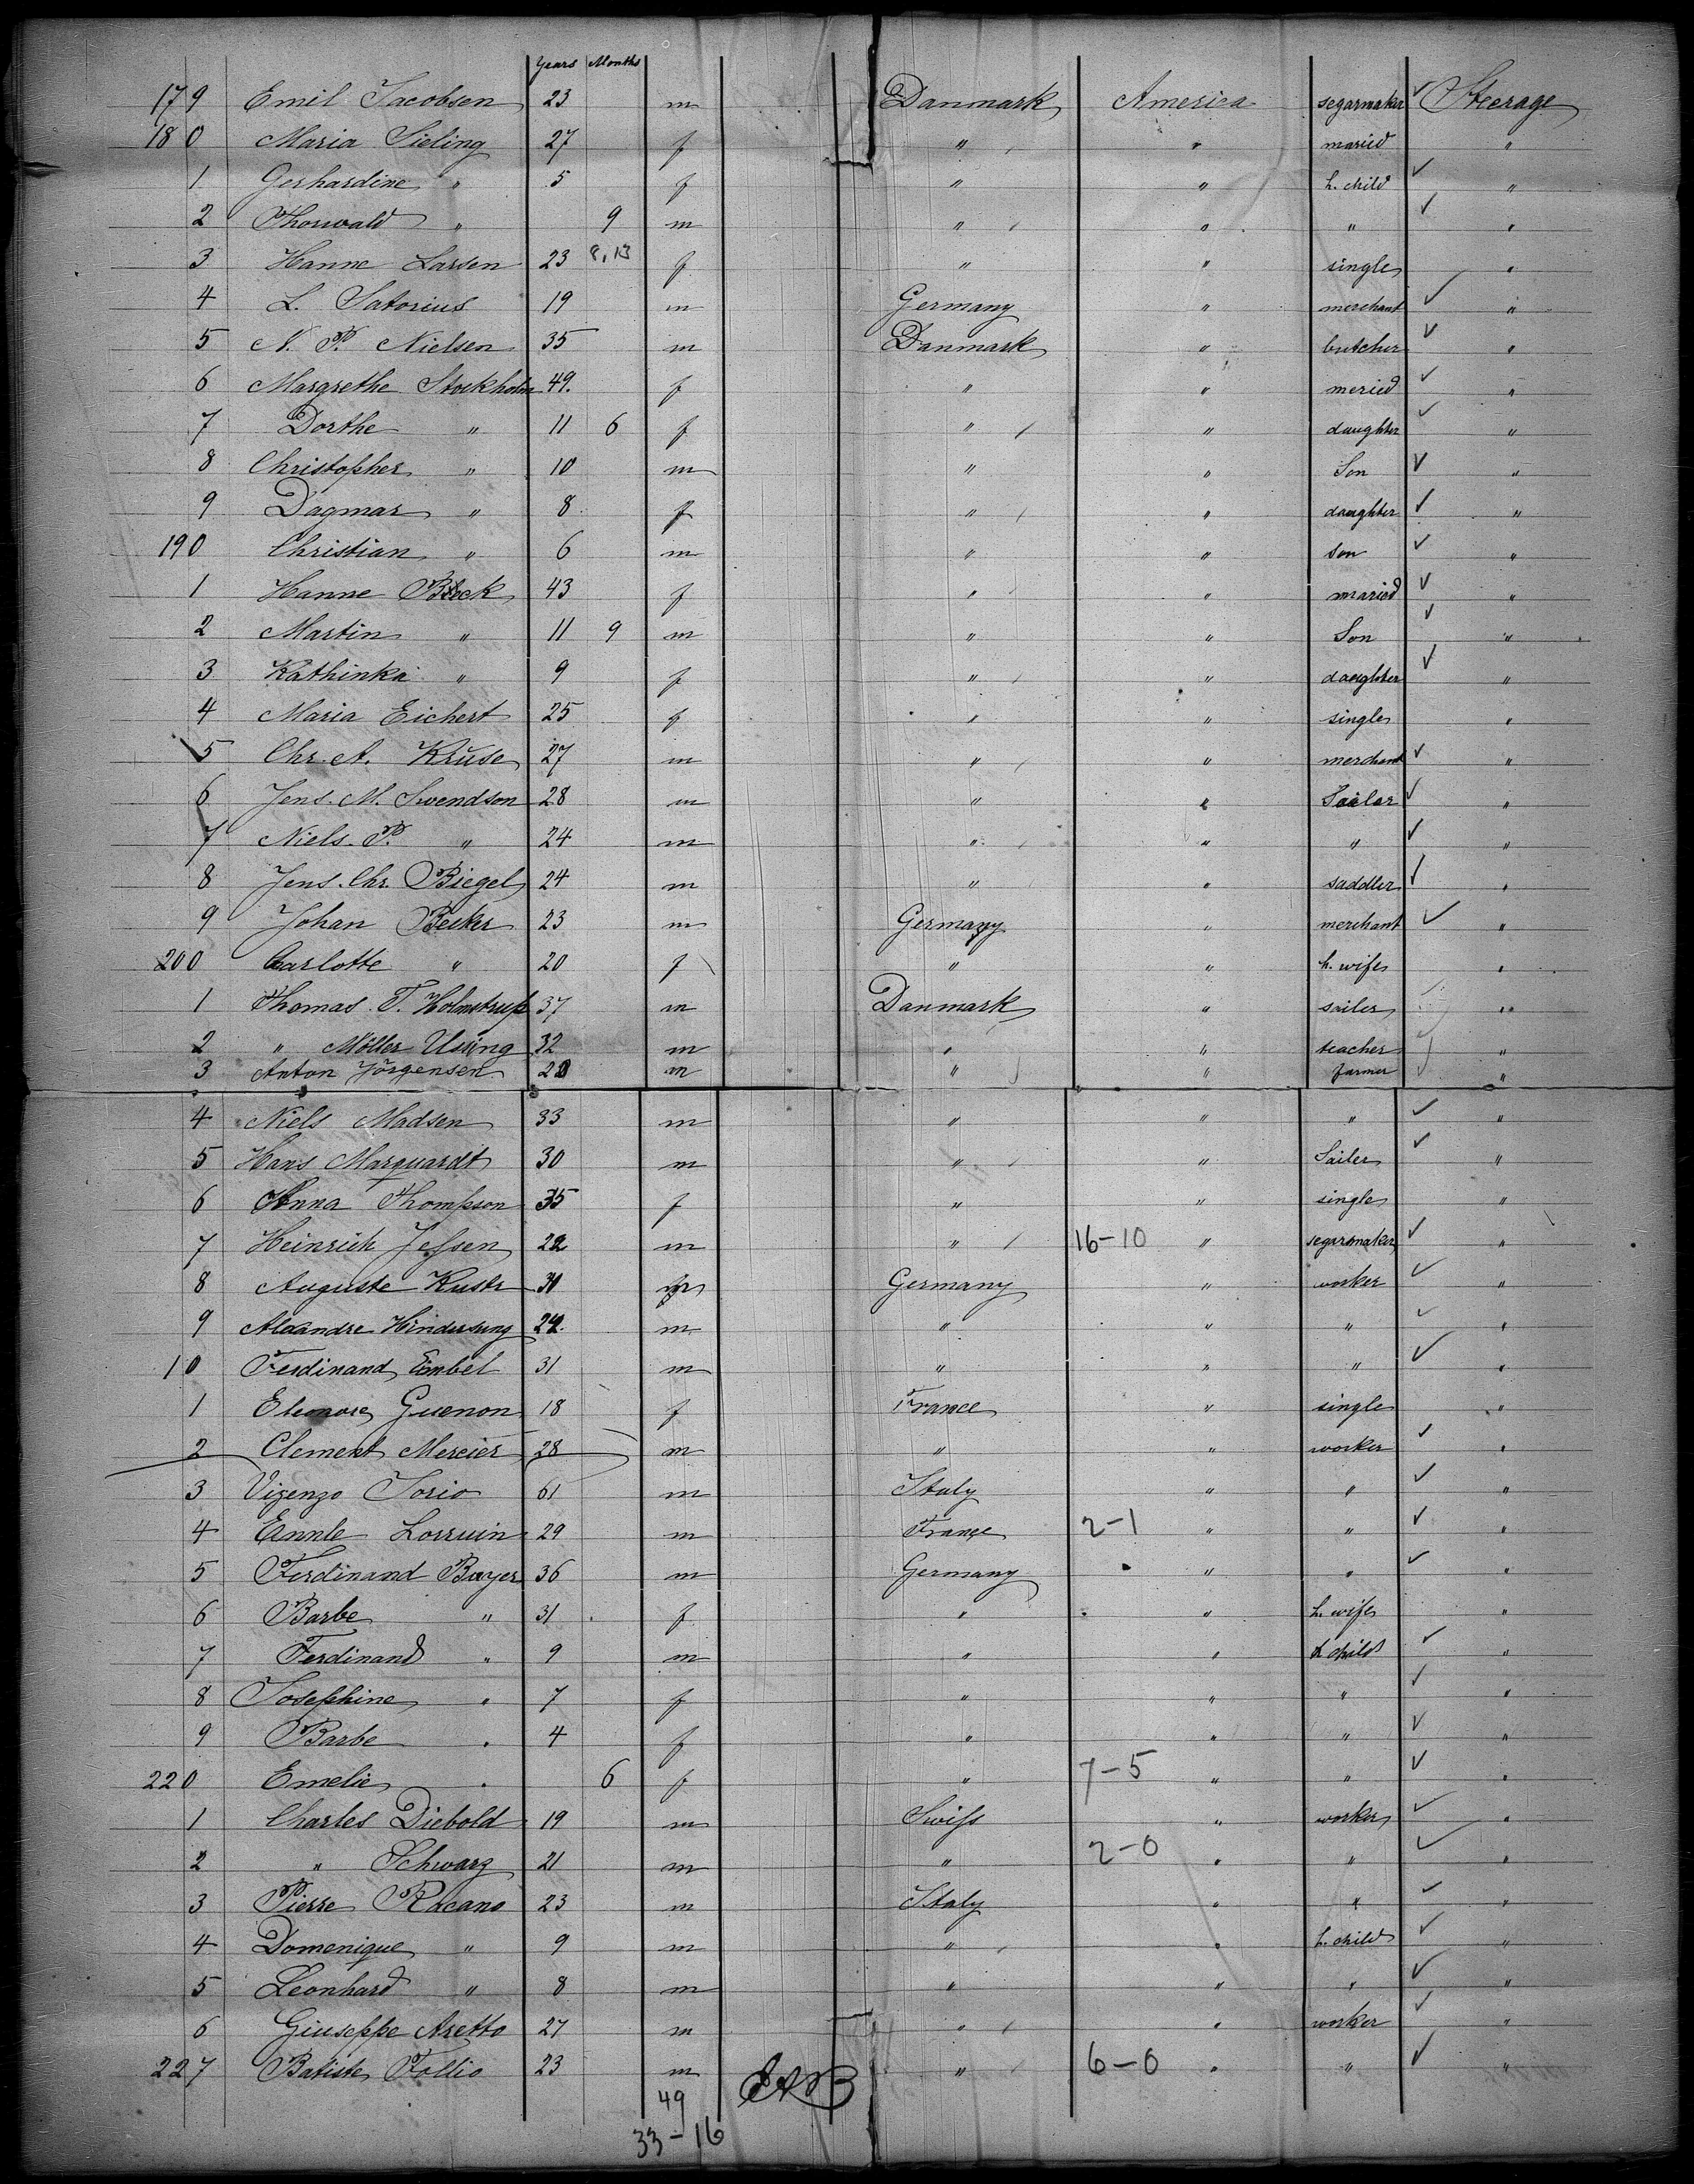 Years Months
179 Emil Jacobsen 23 m Danmark America segarmaker ✓ Steerage
180 Maria Sieling 27 f " " maried "
1 Gerhardine " 5 f " " h. child ✓ "
2 Thorwald " 9 m " " " ✓ "
3 Hanne Larsen 23 8,13 f " " single "
4 L. Satorius 19 m Germany " merchant ✓ "
5 N. P. Nielsen 35 m Danmark " butcher ✓ "
6 Margrethe Stockholm 49. f " " meried ✓ "
7 Dorthe " 11 6 f " " daughter ✓ "
8 Christopher " 10 m " " Son ✓ "
9 Dagmar " 8 f " " daughter ✓ "
190 Christian " 6 m " " son ✓ "
1 Hanne 43 f " " maried ✓ "
2 Martin " 11 9 m " " Son ✓ "
3 Kathinka " 9 f " " daughter ✓ "
4 Maria Eichert 25 f " " single "
5 Chr. A. Kruse 27 m " " merchand ✓ "
6 Jens. M. Swendson 28 m " " Sailor ✓ "
7 Niels. P. " 24 m " " " ✓ "
8 Jens. Chr. Biegel 24 m " " saddler ✓ "
9 Johan Becker 23 m Germany " merchant ✓ "
200 Carlotte " 20 f " " h. wife "
1 Thomas T. Holmstrup 37 m Danmark " sailer ✓ "
2 " Möller Ussing 32 m " " teacher ✓ "
3 Anton Jörgensen m " " farmer ✓ "
4 Niels Madsen 33 m " " " ✓ "
5 Hans Marquardt 30 m " " Sailer ✓ "
6 Anna Thompson 35 f " " single "
7 Heinrich Jessen 22 m " 16-10 " segarmaker ✓ "
8 Auguste Kustr Germany " worker ✓ "
9 m " " " ✓ "
10 Ferdinand Eimbel 31 m " " " ✓ "
1 Eleonore Guenon 18 f France " single "
2 Clement Mercier 28 m " " worker ✓ "
3 Vizenzo Iorio 61 m Italy " " ✓ "
4 Lorruin 29 m France 2-1 " " ✓ "
5 Ferdinand Bayer 36 m Germany " " ✓ "
6 Barbe " 31 f " " h. wife "
7 Ferdinand " 9 m " " h child ✓ "
8 Josephine " 7 f " " " ✓ "
9 Barbe " 4 f " " " ✓ "
220 Emelie " 6 f " 7-5 " " ✓ "
1 Charles Diebold 19 m Swiss " worker ✓ "
2 " Schwarz 21 m " 2-0 " " ✓ "
3 Pierre Racano 23 m Italy " " ✓ "
4 Domenique " 9 m " " h. child ✓ "
5 Leonhard " 8 m " " " ✓ "
6 Giuseppe Aretto 27 m " " worker ✓ "
227 Batiste Follio 23 m " 6-0 " " ✓ "
49
33-16